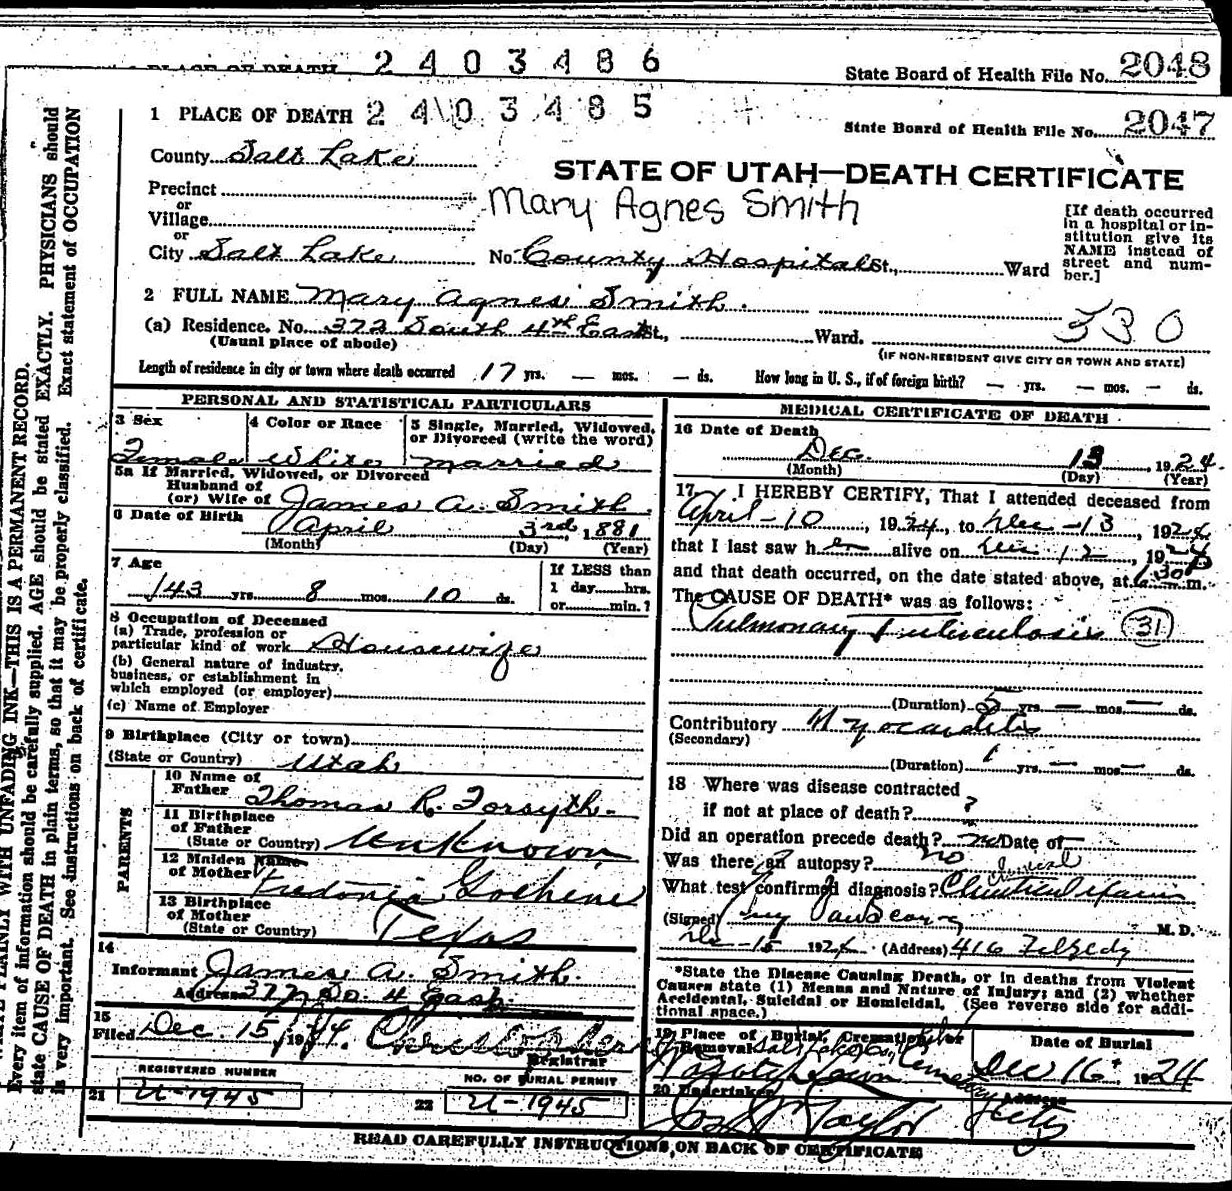 PLACE OF DEATH 2 4 0 3 4 8 6 State Board of Health File No. 2048
1 PLACE OF DEATH 2 4 0 3 4 8 5 State Board of Health File No. 2047
County Salt Lake
STATE OF UTAH—DEATH CERTIFICATE
Precinct
or
Mary Agnes Smith
Village
or
City Salt Lake No. County Hospital St., Ward
[If death occurred
in a hospital or in-
stitution give its
NAME instead of
street and num-
ber.]
2 FULL NAME Mary Agnes Smith.
530
(a) Residence. No. 372 South 4th East St., Ward.
(Usual place of abode)
(IF NON-RESIDENT GIVE CITY OR TOWN AND STATE)
Length of residence in city or town where death occurred 17 yrs. — mos. — ds. How long in U. S., if of foreign birth? — yrs. — mos. — ds.
PERSONAL AND STATISTICAL PARTICULARS
3 Sex
Female
4 Color or Race
White
5 Single, Married, Widowed,
or Divorced (write the word)
Married
5a If Married, Widowed, or Divorced
Husband of
(or) Wife of James A. Smith.
6 Date of Birth April 3rd, 1881
(Month) (Day) (Year)
7 Age
43 yrs. 8 mos. 10 ds.
If LESS than
1 day hrs.
or min.?
8 Occupation of Deceased
(a) Trade, profession or
particular kind of work Housewife
(b) General nature of industry,
business, or establishment in
which employed (or employer)
(c) Name of Employer
9 Birthplace (City or town)
(State or Country) Utah
PARENTS
10 Name of
Father Thomas R. Forsyth.
11 Birthplace
of Father
(State or Country) Unknown
12 Maiden Name
of Mother Fredonia
13 Birthplace
of Mother
(State or Country) Texas
14
Informant James A. Smith.
Address 377 So. 4 East.
15
Filed Dec. 15, 1924.
Registrar
REGISTERED NUMBER
21 U-1945
NO. OF BURIAL PERMIT
22 U-1945
MEDICAL CERTIFICATE OF DEATH
16 Date of Death
Dec. 13, 1924.
(Month) (Day) (Year)
17 I HEREBY CERTIFY, That I attended deceased from
April-10, 1924, to Dec-13, 1924
that I last saw her alive on Dec 12, 1924
and that death occurred, on the date stated above, at m.
The CAUSE OF DEATH* was as follows:
Pulmonary Tuberculosis 31
(Duration) 5 yrs. — mos. — ds.
Contributory Myocarditis
(Secondary)
(Duration) 1 yrs. — mos. — ds.
18 Where was disease contracted
if not at place of death? ?
Did an operation precede death? no Date of —
Was there an autopsy? no
What test confirmed diagnosis? Clinical
(Signed) M. D.
Dec-15 1924 (Address) 416
*State the Disease Causing Death, or in deaths from Violent
Causes state (1) Means and Nature of Injury; and (2) whether
Accidental, Suicidal or Homicidal. (See reverse side for addi-
tional space.)
19 Place of Burial, Cremation or
Removal Salt Lake City Cemetery
Date of Burial
Dec 16 1924
20 Undertaker Taylor
Address City
READ CAREFULLY INSTRUCTIONS ON BACK OF CERTIFICATE
WRITE PLAINLY WITH UNFADING INK—THIS IS A PERMANENT RECORD.
Every item of information should be carefully supplied. AGE should be stated EXACTLY. PHYSICIANS should
state CAUSE OF DEATH in plain terms, so that it may be properly classified. Exact statement of OCCUPATION
is very important. See instructions on back of certificate.